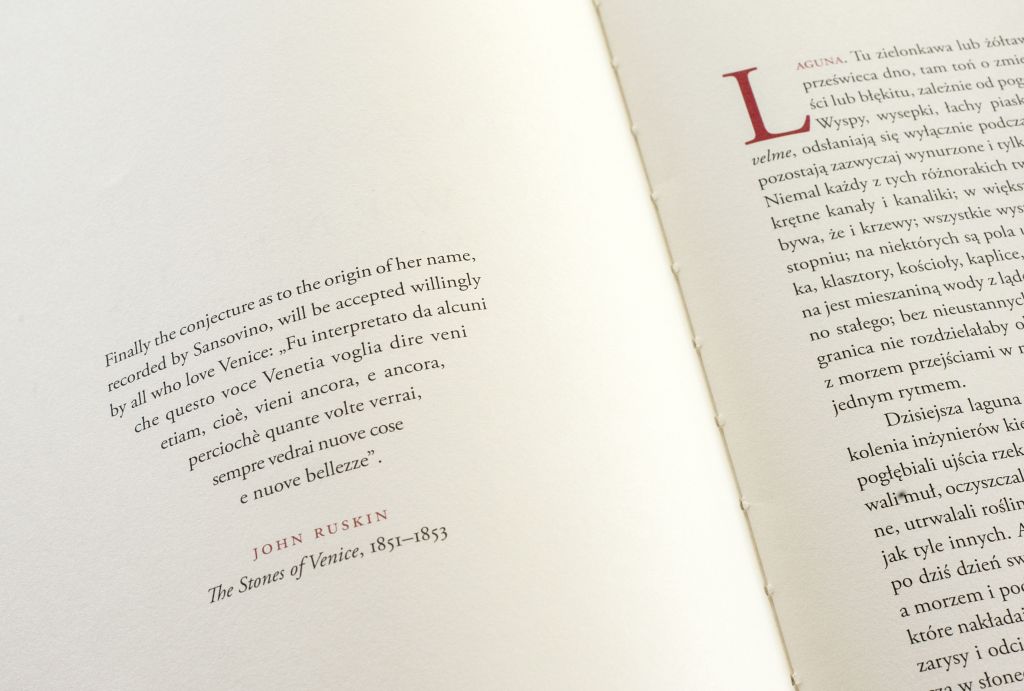 Finally the conjecture as to the origin of her name,
recorded by Sansovino, will be accepted willingly
by all who love Venice: „Fu interpretato da alcuni
che questo voce Venetia voglia dire veni
etiam, cioè, vieni ancora, e ancora,
perciochè quante volte verrai,
sempre vedrai nuove cose
e nuove bellezze”.
JOHN RUSKIN
The Stones of Venice, 1851–1853
LAGUNA. Tu zielonkawa lub
prześwieca dno, tam toń o
ści lub błękitu, zależnie od
Wyspy, wysepki, łachy
velme, odsłaniają się wyłącznie
pozostają zazwyczaj wynurzone i
Niemal każdy z tych różnorakich
krętne kanały i kanaliki; w
bywa, że i krzewy; wszystkie
stopniu; na niektórych są pola
ka, klasztory, kościoły, kaplice,
na jest mieszaniną wody z
no stałego; bez
granica nie rozdzielałaby
z morzem przejściami w
jednym rytmem.
Dzisiejsza laguna
kolenia inżynierów
pogłębiali ujścia
wali muł,
ne, utrwalali
jak tyle innych.
po dziś dzień
a morzem i
które
zarysy i
w